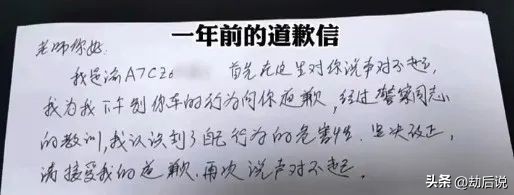 一年前的道歉信
老师你好:
我是渝A7CZ6 首先在这里对你说声对不起,
我为我下午别你车的行为向你道歉,经过警察同志
的教训,我认识到了自己行为的危害性,坚决改正,
请接受我的道歉,再次说声对不起。
头条 @劫后说